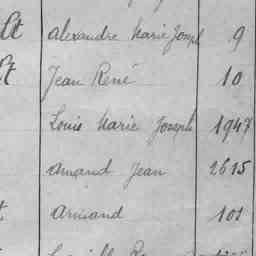 lt Alexandre Marie Joseph 9
lt Jean René 10
Louis Marie Joseph 1947
Amand Jean 2615
t Armand 101